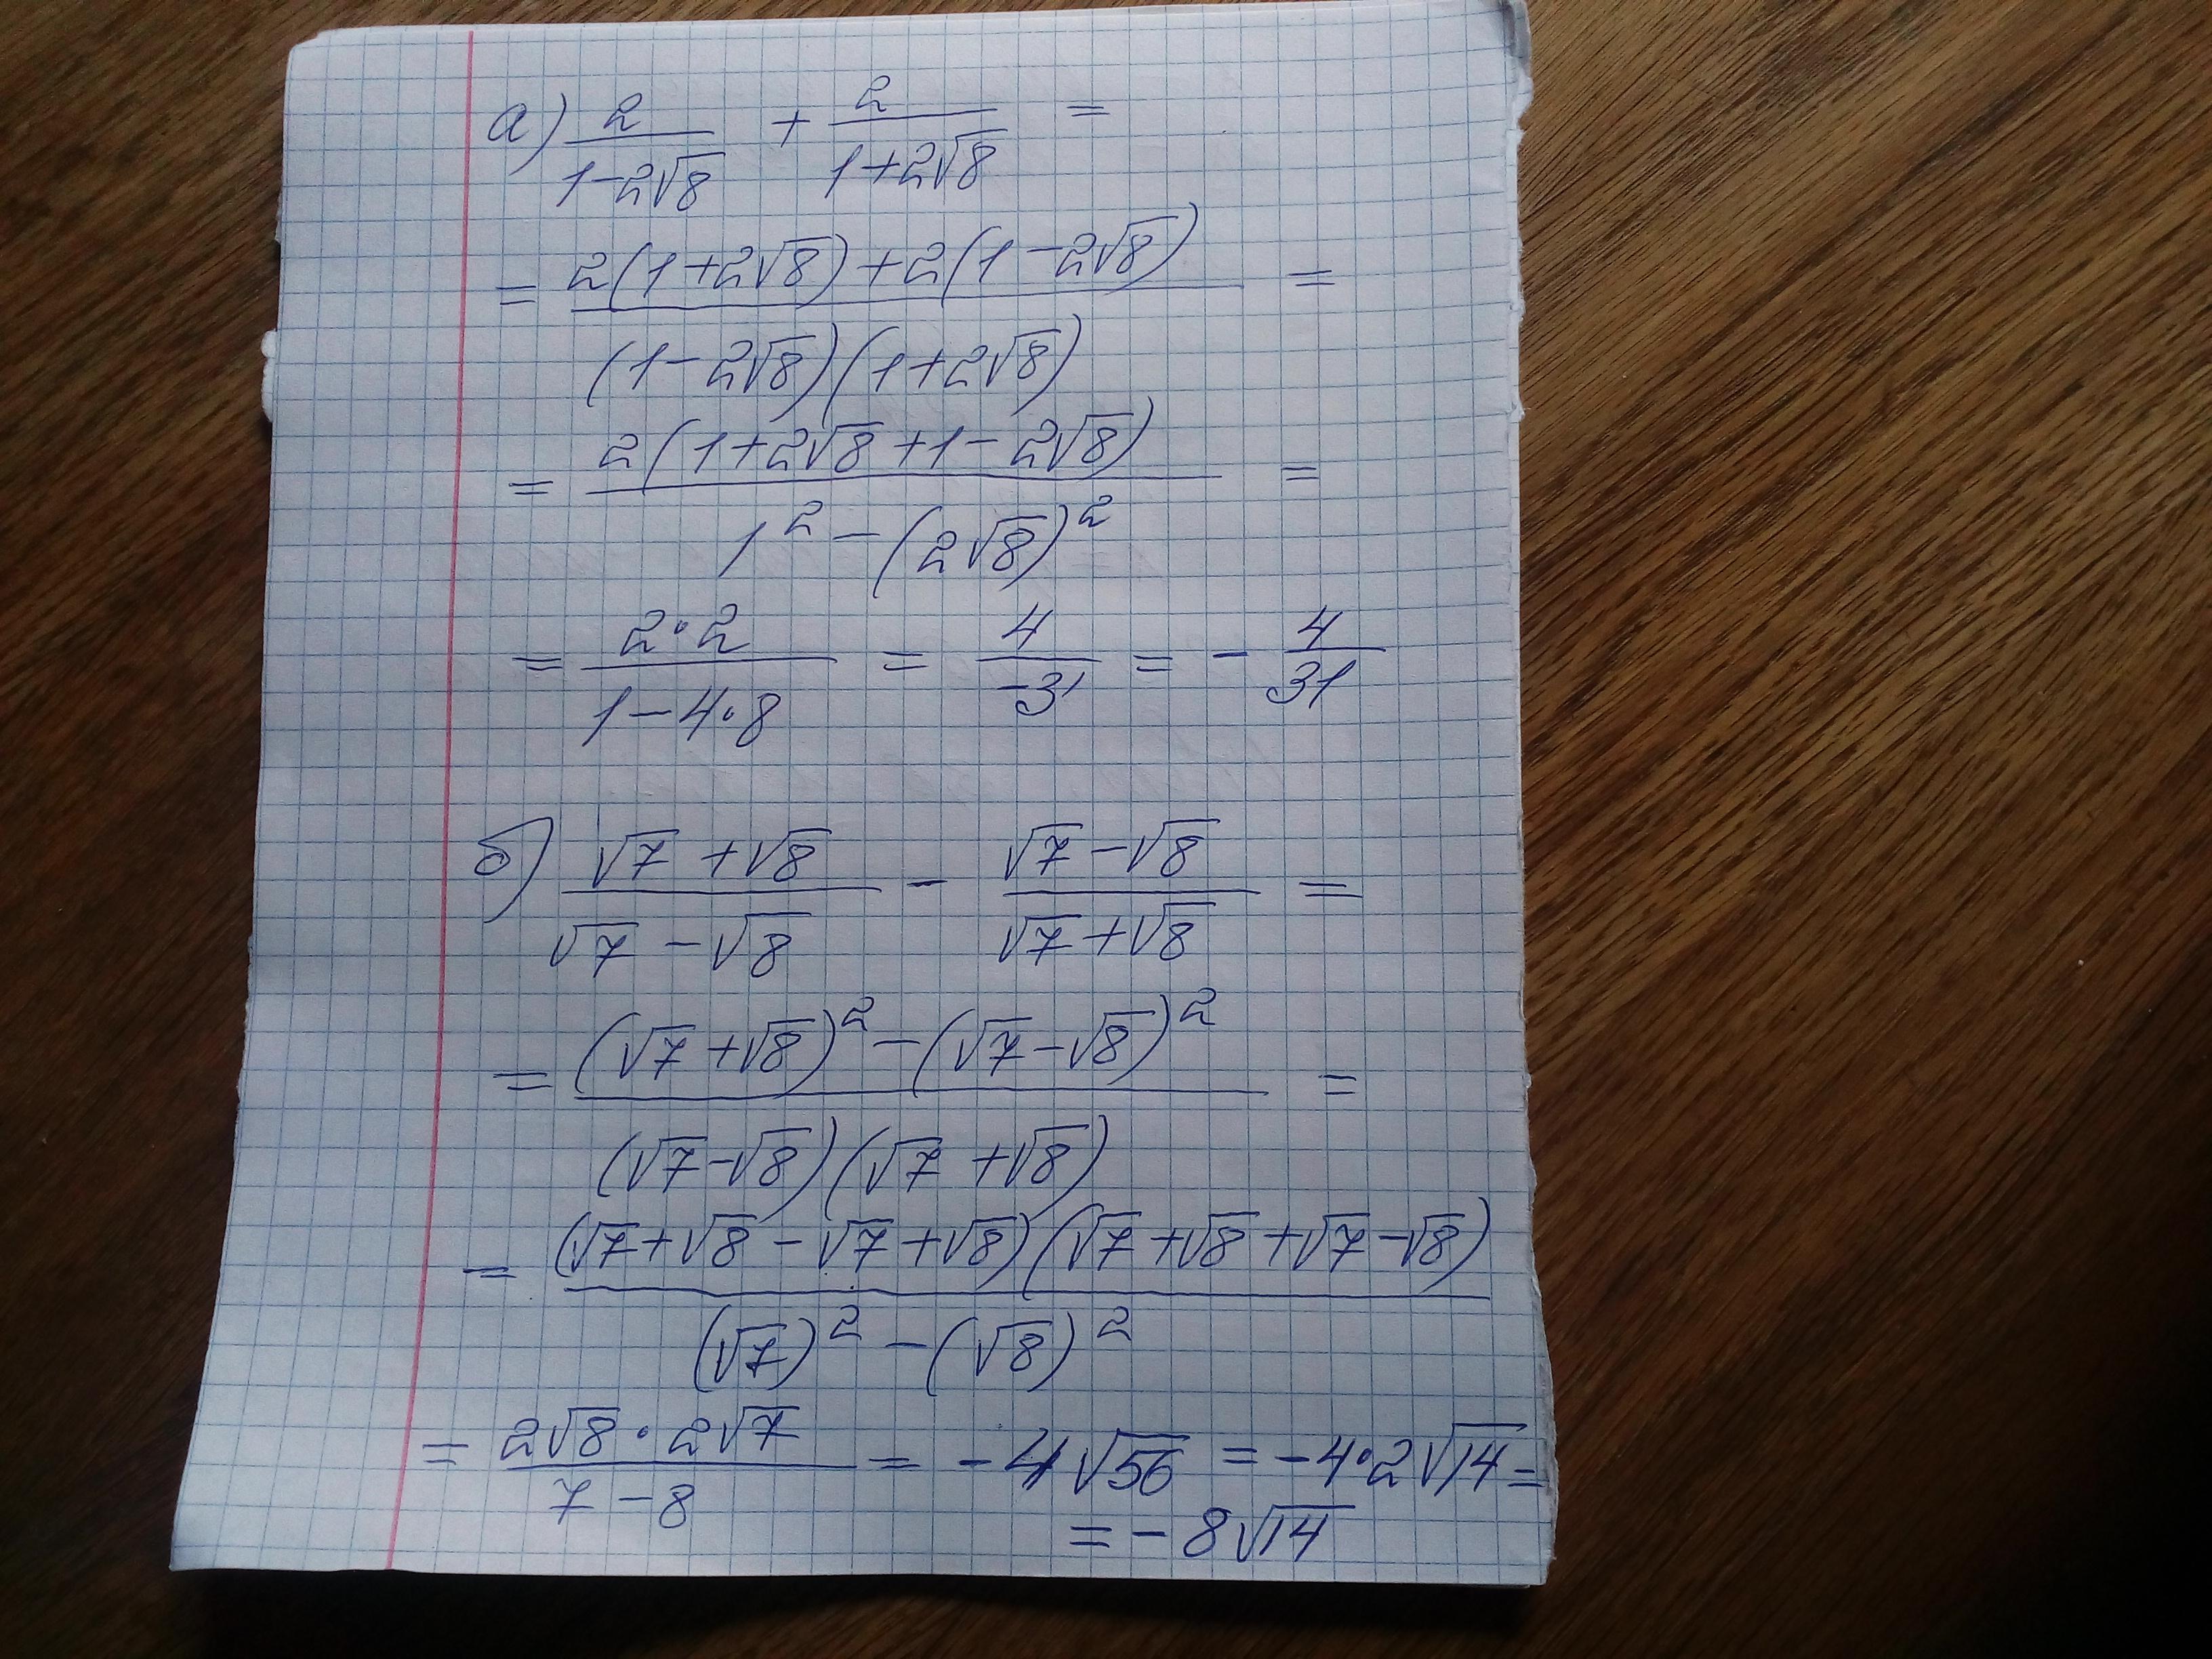 а) 2/(1-2√8) + 2/(1+2√8) =
= (2(1+2√8)+2(1-2√8))/((1-2√8)(1+2√8)) =
= (2(1+2√8+1-2√8))/(1²-(2√8)²) =
= (2·2)/(1-4·8) = 4/(-31) = -4/31
б) (√7+√8)/(√7-√8) - (√7-√8)/(√7+√8) =
= ((√7+√8)²-(√7-√8)²)/((√7-√8)(√7+√8)) =
= ((√7+√8-√7+√8)(√7+√8+√7-√8))/((√7)²-(√8)²)
= (2√8·2√7)/(7-8) = -4√56 = -4·2√14 =
= -8√14